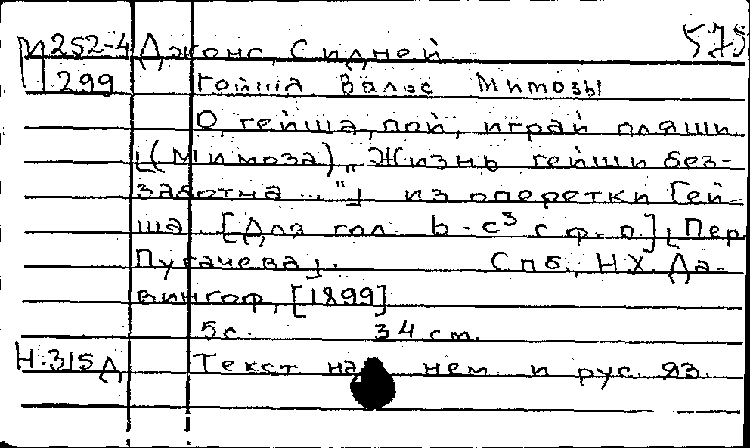 М252-4 Джонс, Сидней 575
299 Гейша. Вальс Мимозы
О, гейша, пой, играй пляши
(Мимоза) „Жизнь гейши без-
заботна..." из оперетки Гей-
ша. [Для гол. b-c³ с ф.-п.] Пер
Пугачева. Спб., Н.Х. Да-
вингоф, [1899]
5с. 34 см.
Н.315Д Текст на нем. и рус. яз.